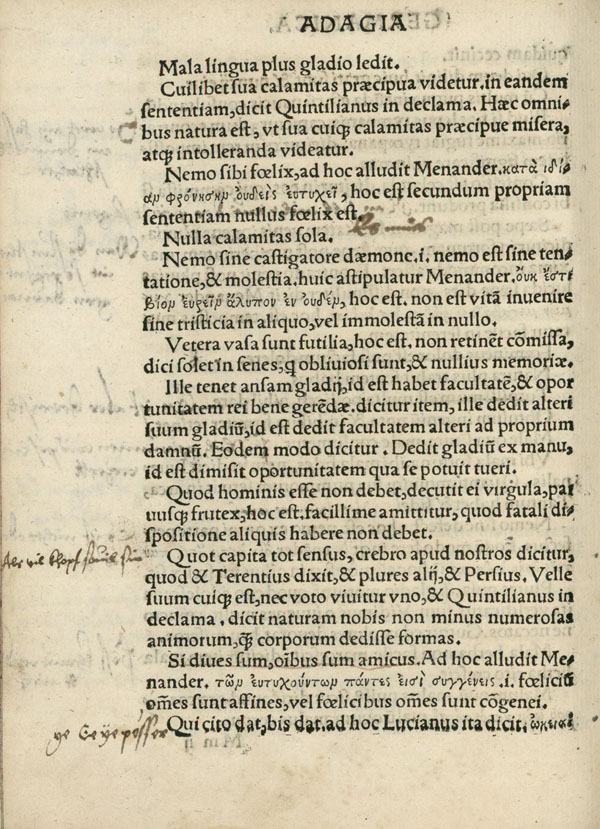 ADAGIA
Mala lingua plus gladio ledit.
Cuilibet sua calamitas præcipua videtur. in eandem
sententiam, dicit Quintilianus in declama. Hæc omni-
bus natura est, vt sua cuiqꝫ calamitas præcipue misera,
atqꝫ intolleranda videatur.
Nemo sibi fœlix, ad hoc alludit Menander. κατὰ ἰδί-
αν φρόνησιν οὐδεὶς εὐτυχεῖ, hoc est secundum propriam
sententiam nullus fœlix est.
Nulla calamitas sola.
Nemo sine castigatore dæmone. i. nemo est sine ten-
tatione, & molestia. huic astipulatur Menander. οὐκ ἐστι
βίον εὑρεῖν ἄλυπον ἐν οὐδέν, hoc est. non est vitā inuenire
sine tristicia in aliquo, vel immolestā in nullo.
Vetera vasa sunt futilia, hoc est. non retinēt cōmissa,
dici solet in senes, ꝙ obliuiosi sunt, & nullius memoriæ.
Ille tenet ansam gladij, id est habet facultatē, & opor
tunitatem rei bene gerēdæ. dicitur item, ille dedit alteri
suum gladiū, id est dedit facultatem alteri ad proprium
damnū. Eodem modo dicitur. Dedit gladiū ex manu,
id est dimisit oportunitatem qua se potuit tueri.
Quod hominis esse non debet, decutit ei virgula, par
uusqꝫ frutex, hoc est. facillime amittitur, quod fatali di-
spositione aliquis habere non debet.
Quot capita tot sensus, crebro apud nostros dicitur,
quod & Terentius dixit, & plures alij, & Persius. Velle
suum cuiqꝫ est, nec voto viuitur vno, & Quintilianus in
declama. dicit naturam nobis non minus numerosas
animorum, ꝙ̃ corporum dedisse formas.
Si diues sum, oībus sum amicus. Ad hoc alludit Me-
nander. τῶν εὐτυχούντων πάντες εἰσὶ συγγένεις. i. fœliciū
om̄es sunt affines, vel fœlicibus om̄es sunt cōgenei.
Qui cito dat, bis dat. ad hoc Lucianus ita dicit. ὠκεῖαι